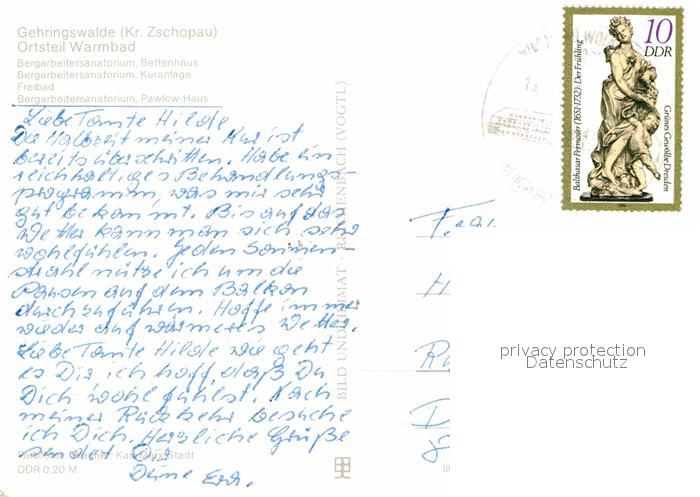 Gehringswalde (Kr. Zschopau)
Ortsteil Warmbad
Bergarbeitersanatorium, Bettenhaus
Bergarbeitersanatorium, Kuranlage
Freibad
Bergarbeitersanatorium, Pawlow-Haus
Liebe Tante Hilde
Die Halbzeit meiner Kur ist
bereits überschritten. Habe ein
reichhaltiges Behandlungs-
programm, was mir sehr
gut bekommt. Bis auf das
Wetter kann man sich sehr
wohlfühlen. Jeden Sonnen-
strahl nütze ich um die
Pausen auf dem Balkon
durchzuführen. Hoffe immer
wieder auf wärmeres Wetter.
Liebe Tante Hilde wie geht
es Dir ich hoff, daß Du
Dich wohl fühlst. Nach
meiner Rückkehr besuche
ich Dich. Herzliche Grüße
sendet Dir
Deine
Karl-Marx-Stadt
DDR 0,20 M
BILD UND HEIMAT · REICHENBACH (VOGTL)
10
DDR
Balthasar Permoser (1651-1732): Der Frühling
Grünes Gewölbe Dresden
1984
Frau
H
D
privacy protection
Datenschutz